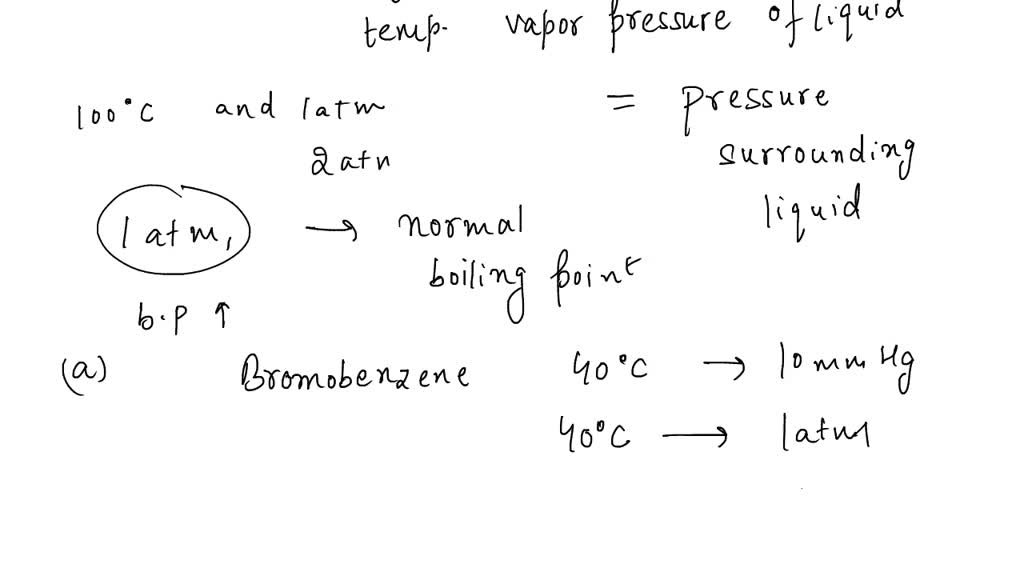 temp. vapor pressure of liquid
100°C and 1atm = pressure
2atn surrounding
1 atm, → normal liquid
boiling point
b.p ↑
(a) Bromobenzene 40°C → 10mm Hg
40°C → 1atm